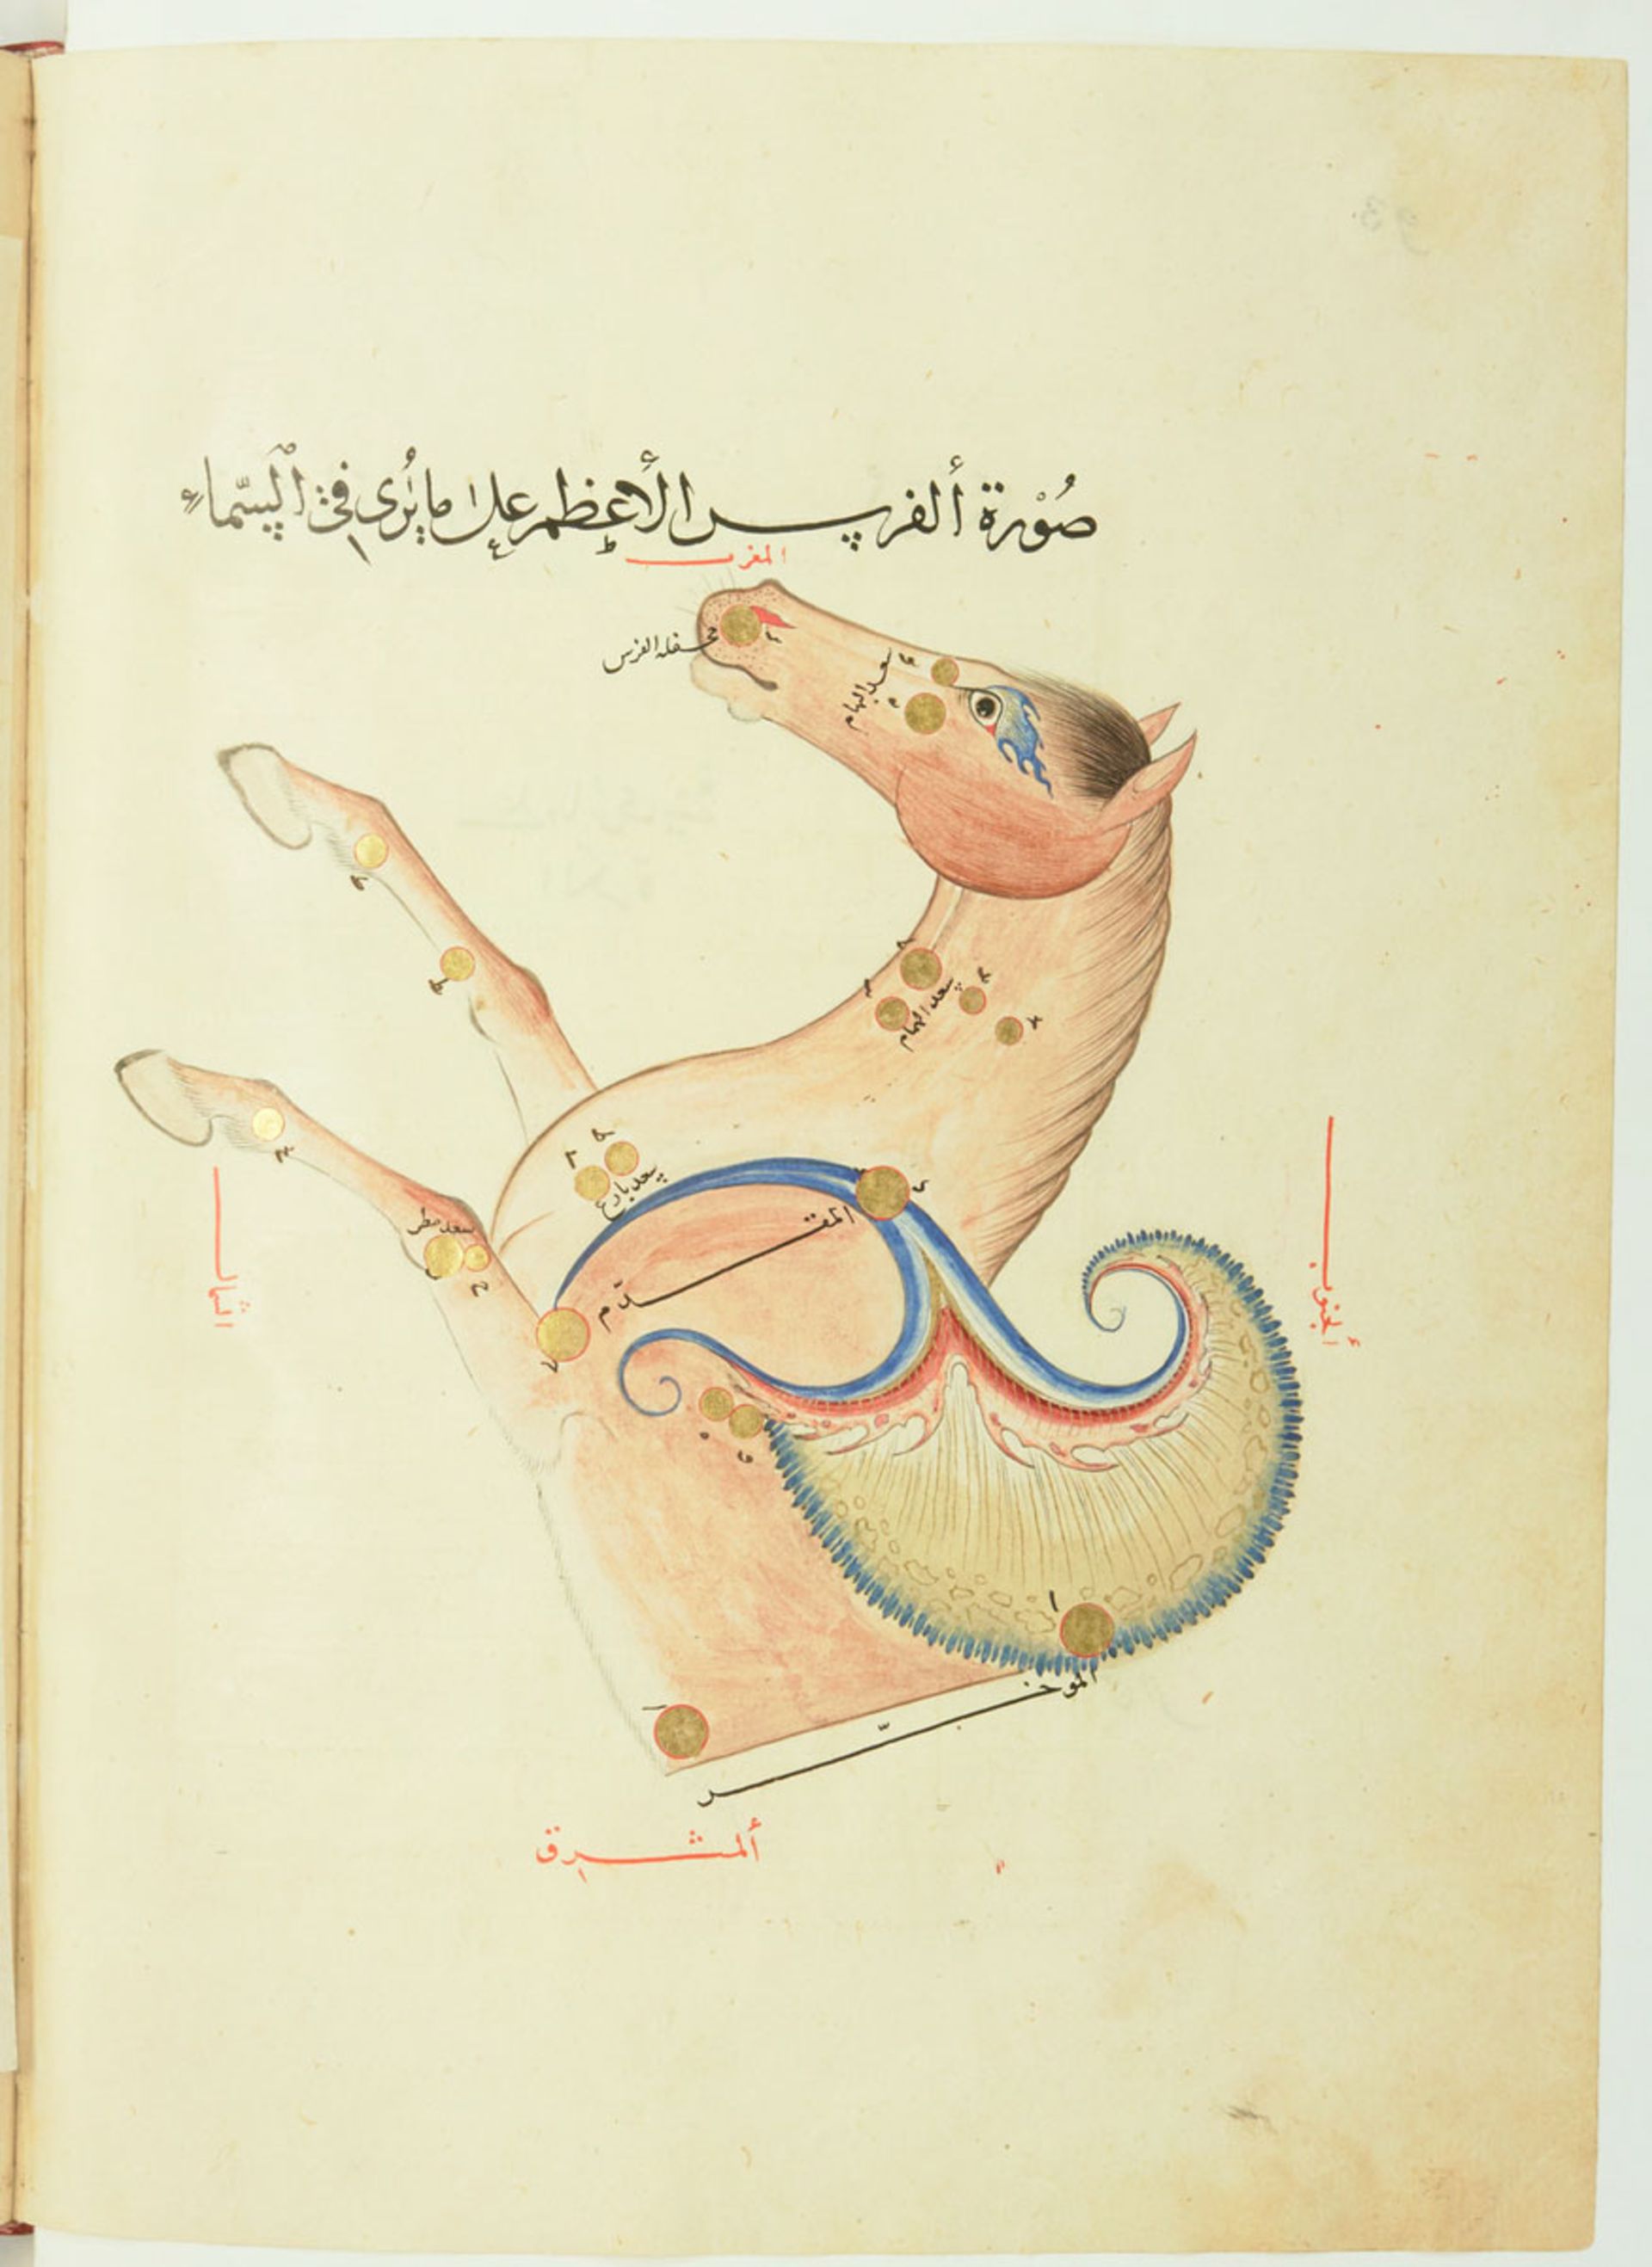 صُوْرة ألفرس الأعظم على ما يُرى في السّماء
المغرب
جحفلة الفرس
سعد البهام
سعد الهمام
سعد بارع
سعد مطر
المقدّم
الشمال
ألجنوب
الموخّر
ألمشرق